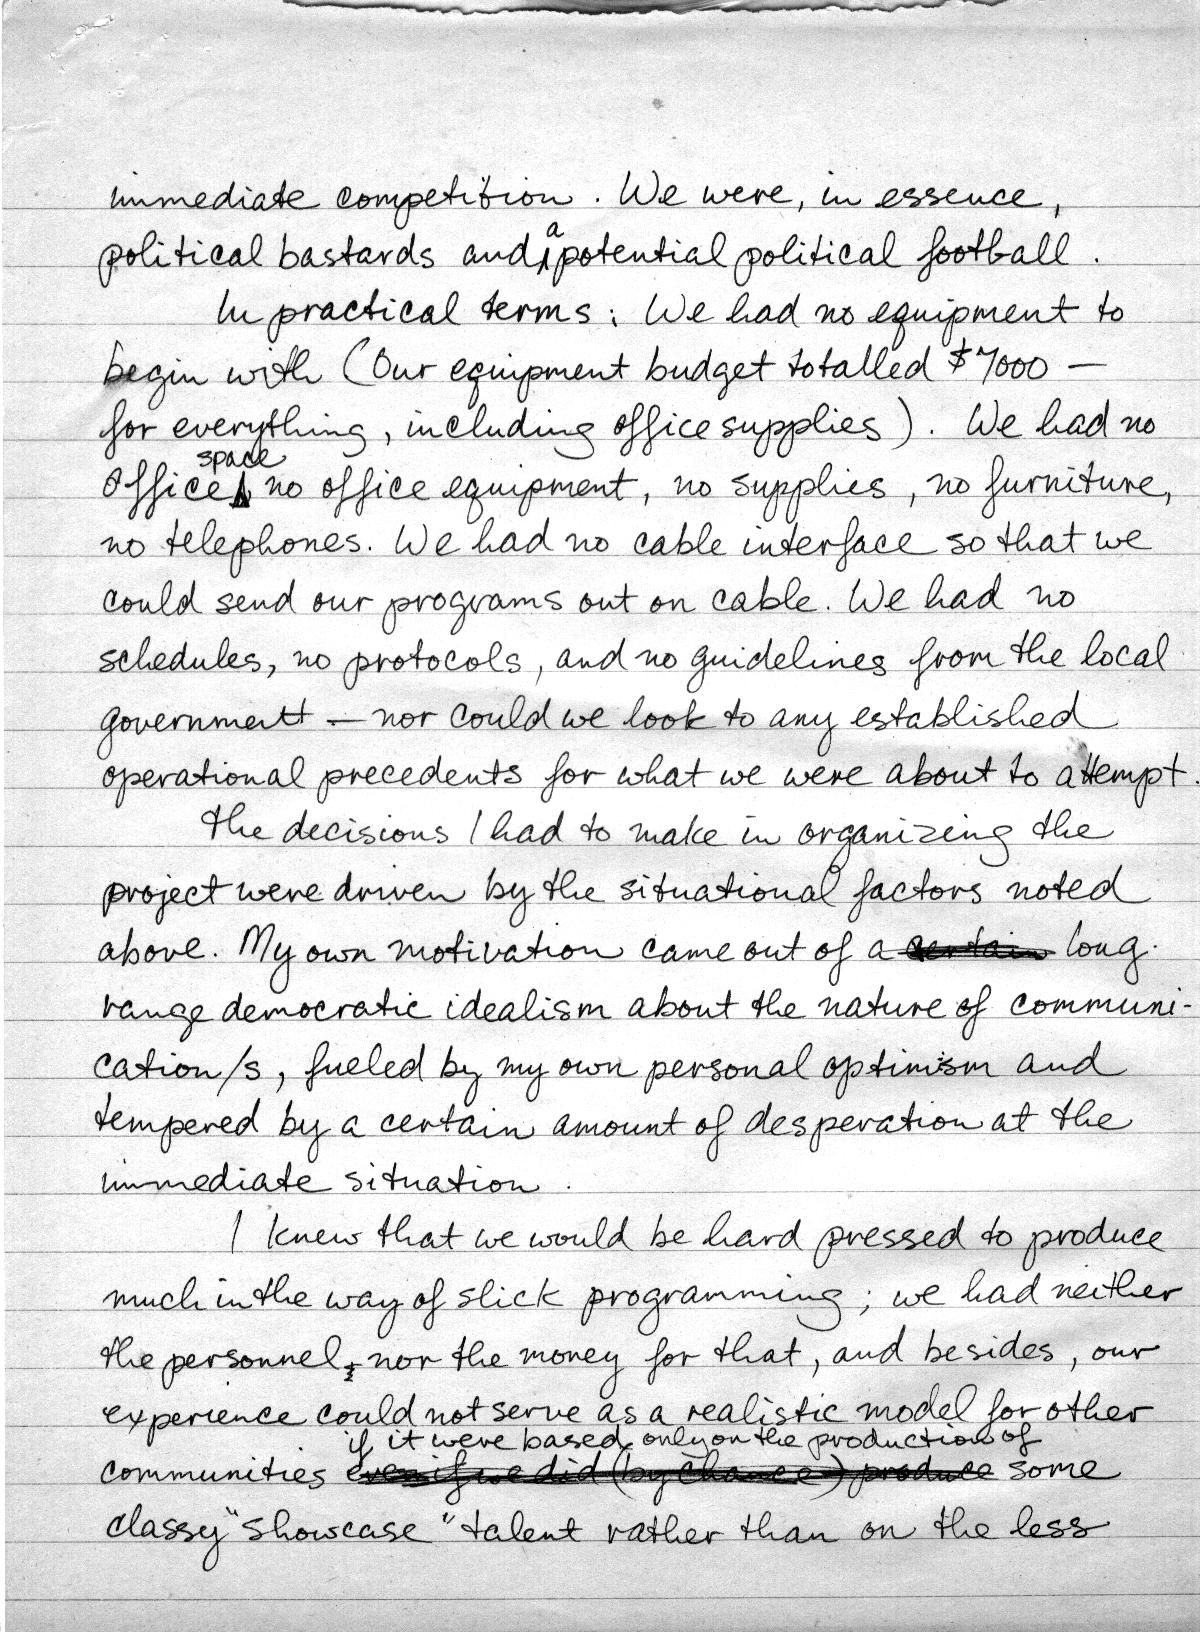 immediate competition. We were, in essence,
political bastards and a potential political football.
In practical terms: We had no equipment to
begin with (Our equipment budget totalled $7000 —
for everything, including office supplies). We had no
office space, no office equipment, no supplies, no furniture,
no telephones. We had no cable interface so that we
could send our programs out on cable. We had no
schedules, no protocols, and no guidelines from the local
government — nor could we look to any established
operational precedents for what we were about to attempt.
The decisions I had to make in organizing the
project were driven by the situational factors noted
above. My own motivation came out of a certain long-
range democratic idealism about the nature of communi-
cation/s, fueled by my own personal optimism and
tempered by a certain amount of desperation at the
immediate situation.
I knew that we would be hard pressed to produce
much in the way of slick programming; we had neither
the personnel, nor the money for that, and besides, our
experience could not serve as a realistic model for other
if it were based only on the production of
communities even if we did (by chance) produce some
classy "showcase" talent rather than on the less